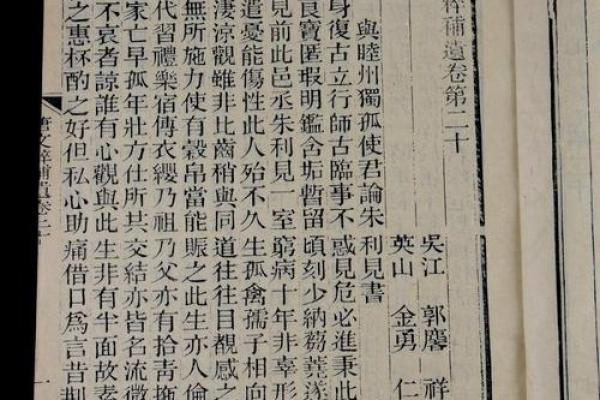 粹補遺卷第二十
吳江 郭麐 祥
英山 金勇 仁
與睦州獨孤使君論朱利見書
身復古立行師古臨事不惑見危必進秉此
良寶匿瑕明鑑含垢暫留頃刻少納芻蕘遂
見前此邑丞朱利見一室窮病十年非辜形
遣憂能傷性此人殆不久生孤禽孺子相向
淒涼觀雖非比齒稍與同道往往目覩感之
無所施力使有穀帛當能賑之此生亦人倫
代習禮樂宿傳衣纓乃祖乃父亦有拾青拖
家亡早孤年壯方仕所共交結亦皆名流微
不哀者諒誰有心觀與此生非有半面故素
之惠杯酌之好但私心助痛借口爲言昔荆
唐文粹補遺卷二十 一